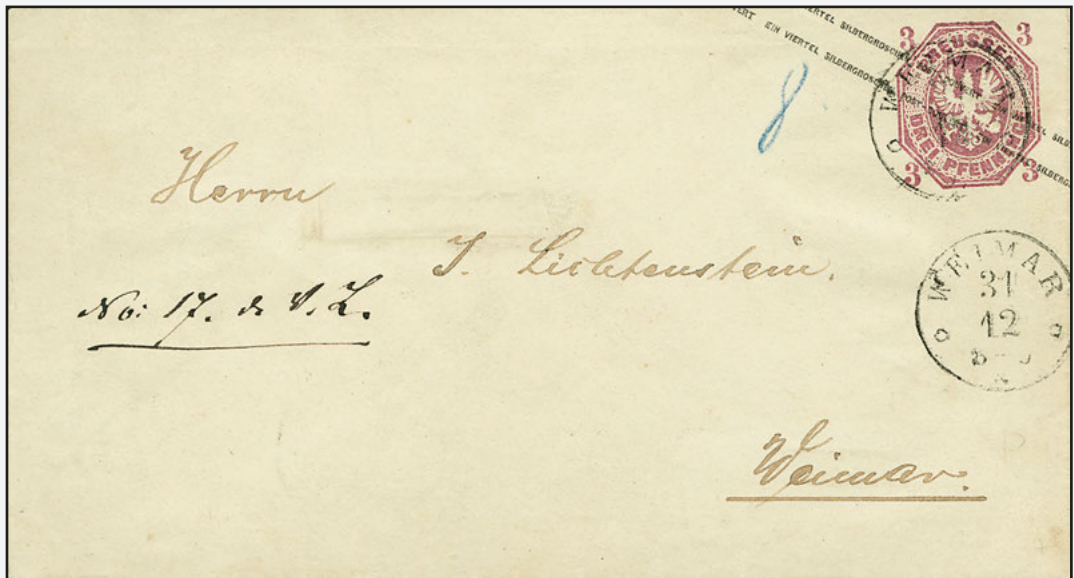 EIN VIERTEL SILBERGROSCHEN
EIN VIERTEL SILBERGROSCHEN
3 3
PREUSSEN
DREI PFENNINGE
3 3
WEIMAR
8
Herrn
J. Lichtenstein.
No: 17. d. V. L.
WEIMAR
31
12
Weimar.